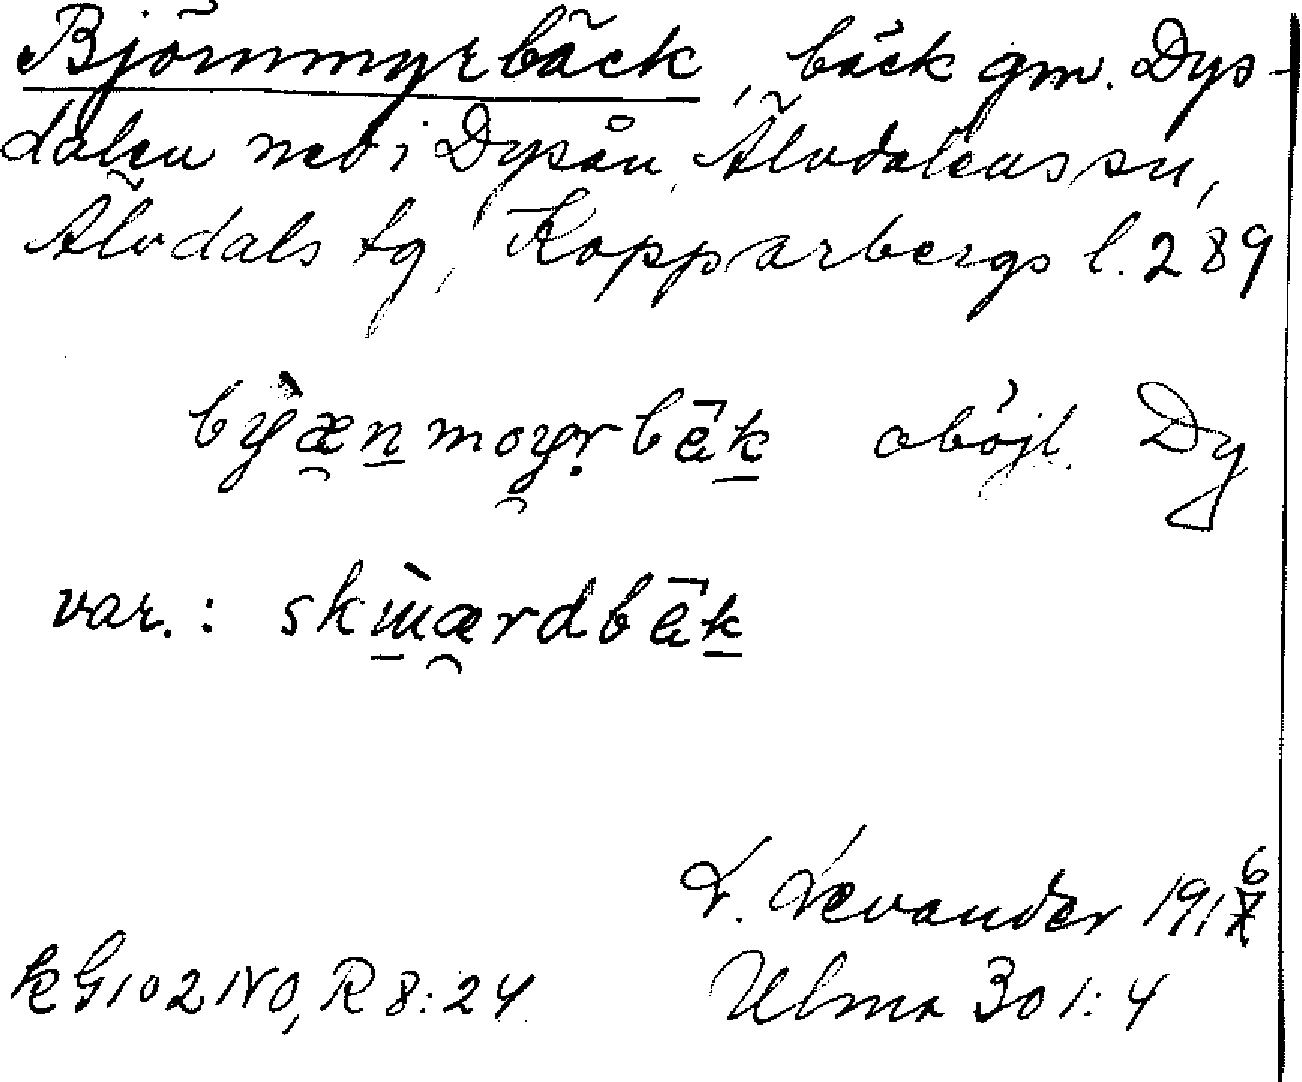 Björnmyrbäck, bäck gm. Dys-
dalen ned i Dysån, Älvdalens sn,
Älvdals tg, Kopparbergs l. 289
oböjl. Dy
var.:
L. Levander 1916
k G102NO, R8:24 Ulma 301:4